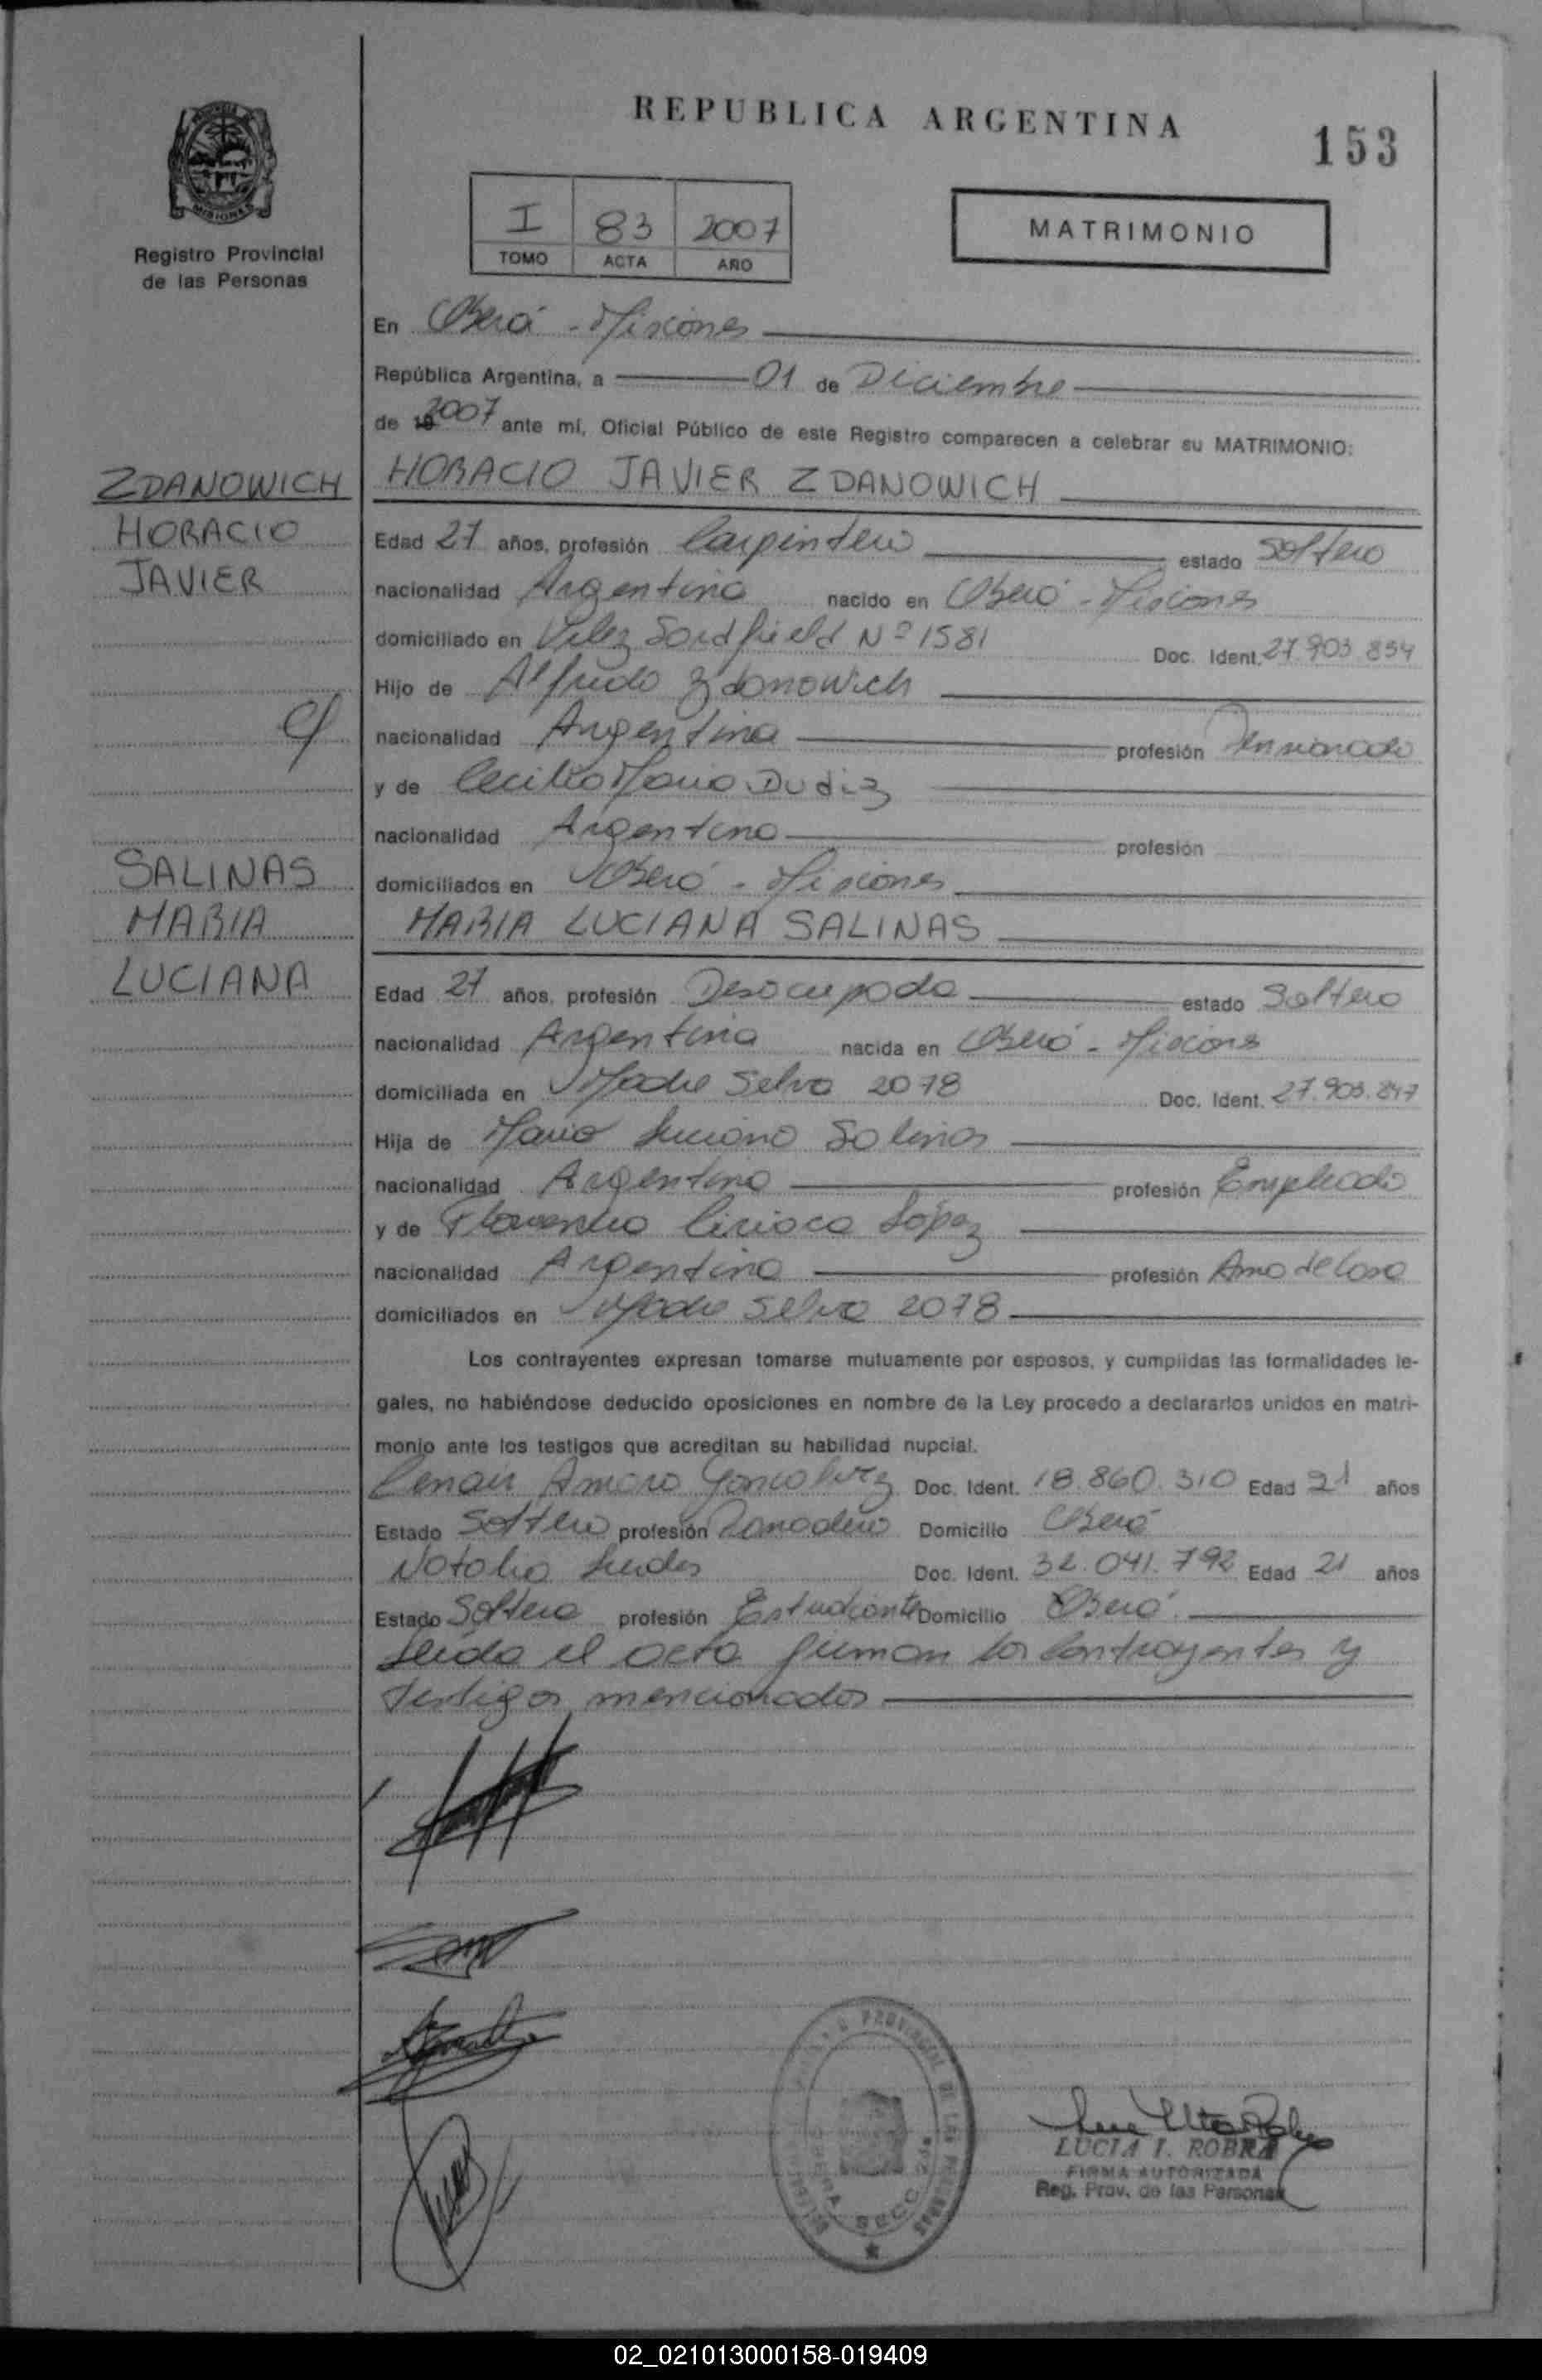 REPUBLICA ARGENTINA
153
MISIONES
Registro Provincial
de las Personas
I 83 2007
TOMO ACTA AÑO
MATRIMONIO
En Oberá - Misiones
República Argentina, a 01 de Diciembre
de 19 2007 ante mí, Oficial Público de este Registro comparecen a celebrar su MATRIMONIO:
ZDANOWICH
HORACIO
JAVIER
HORACIO JAVIER ZDANOWICH
Edad 27 años, profesión Carpintero estado Soltero
nacionalidad Argentina nacido en Oberá - Misiones
domiciliado en Velez Sardfield Nº 1581 Doc. Ident. 27.903.854
Hijo de Alfredo Zdanowich
nacionalidad Argentina profesión Pensionado
y de Cecilia Maria Dudiz
nacionalidad Argentina profesión
domiciliados en Oberá - Misiones
SALINAS
MARIA
LUCIANA
MARIA LUCIANA SALINAS
Edad 27 años, profesión Desocupada estado Soltera
nacionalidad Argentina nacida en Oberá - Misiones
domiciliada en Madre Selva 2078 Doc. Ident. 27.903.847
Hija de Mario Luciano Salinas
nacionalidad Argentina profesión Empleado
y de Ciriaca López
nacionalidad Argentina profesión Ama de Casa
domiciliados en Madre Selva 2078
Los contrayentes expresan tomarse mutuamente por esposos, y cumplidas las formalidades le-
gales, no habiéndose deducido oposiciones en nombre de la Ley procedo a declararlos unidos en matri-
monio ante los testigos que acreditan su habilidad nupcial.
Amaro Doc. Ident. 18.860.310 Edad 21 años
Estado Soltero profesión Panadero Domicilio Oberá
Natalia Doc. Ident. 32.041.792 Edad 21 años
Estado Soltera profesión Estudiante Domicilio Oberá
Leida el acta firman los contrayentes y
testigos mencionados
LUCIA I. ROBRA
FIRMA AUTORIZADA
Reg. Prov. de las Personas
02_021013000158-019409